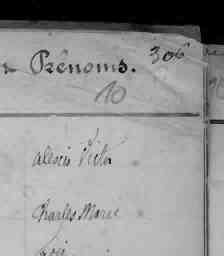 Prénoms. 306
10
Alexis Victor
Charles Marie